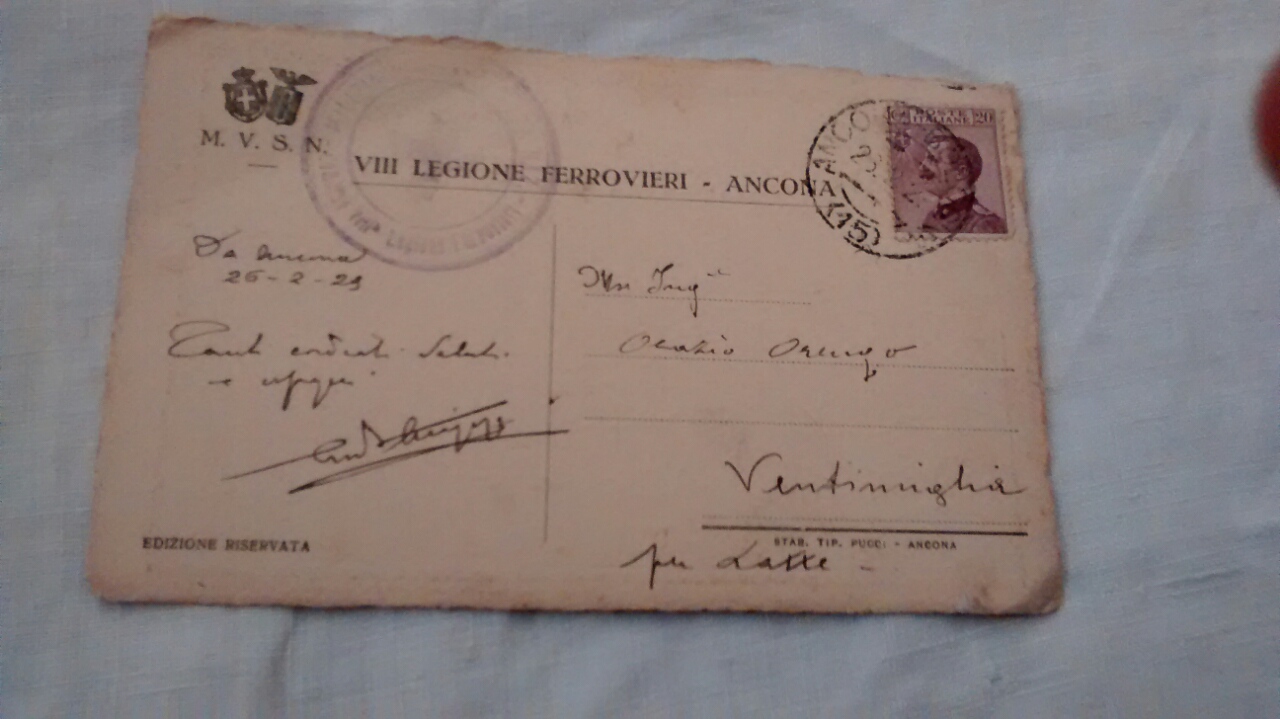 M. V. S. N.
VIII LEGIONE FERROVIERI - ANCONA
POSTE
ITALIANE 20
ANCO
(15)
Da Ancona
26-2-29
Tanti cordiali Saluti
e
Ing
Orazio Orengo
Ventimiglia
per Latte -
EDIZIONE RISERVATA
STAB. TIP. PUCCI - ANCONA